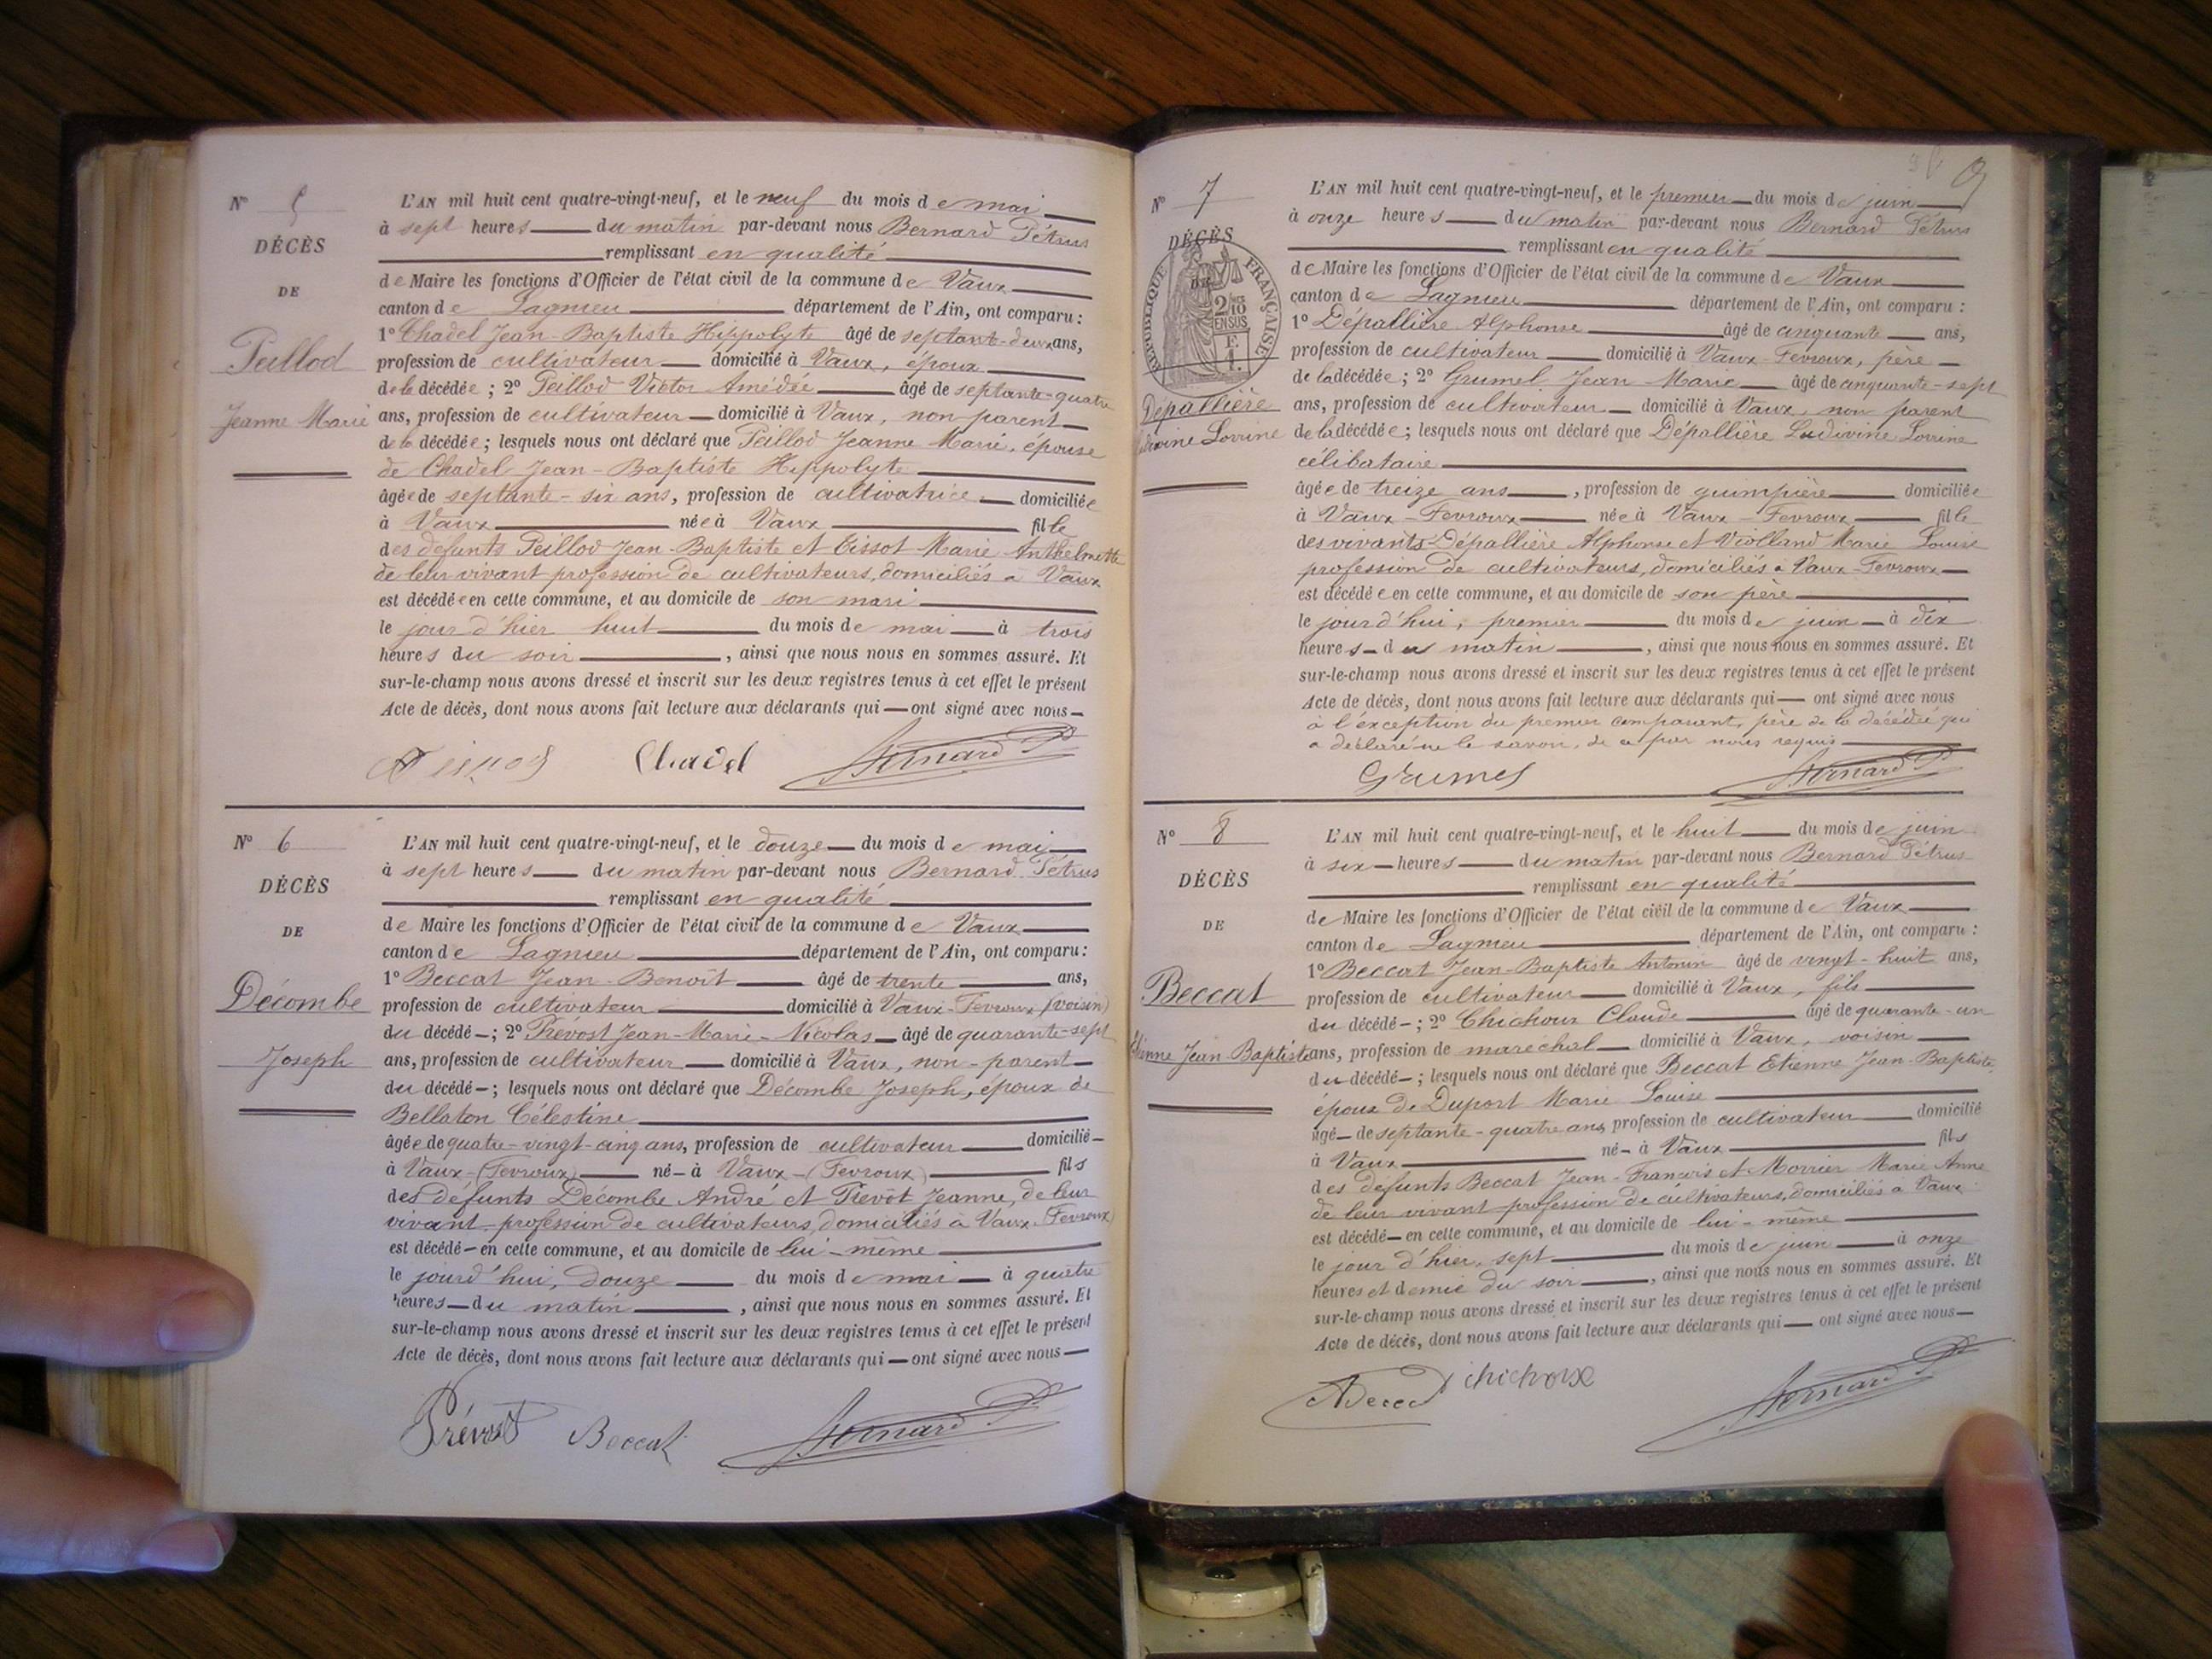 N° 5
DÉCÈS
DE
Peillod
Jeanne Marie
L'AN mil huit cent quatre-vingt-neuf, et le neuf du mois de mai
à sept heures du matin par-devant nous Bernard Pétrus
remplissant en qualité
de Maire les fonctions d'Officier de l'état civil de la commune de Vaux
canton de Lagnieu département de l'Ain, ont comparu :
1° Chadel Jean-Baptiste Hippolyte âgé de septante-deux ans,
profession de cultivateur domicilié à Vaux, époux
de la décédée ; 2° Peillod Victor Amédée âgé de septante-quatre
ans, profession de cultivateur domicilié à Vaux, non parent
de la décédée ; lesquels nous ont déclaré que Peillod Jeanne Marie, épouse
de Chadel Jean-Baptiste Hippolyte
âgée de septante-six ans, profession de cultivatrice domiciliée
à Vaux née à Vaux fille
des défunts Peillod Jean-Baptiste et Tissot Marie Anthelmette
de leur vivant profession de cultivateurs, domiciliés à Vaux
est décédée en cette commune, et au domicile de son mari
le jour d'hier huit du mois de mai à trois
heures du soir , ainsi que nous nous en sommes assuré. Et
sur-le-champ nous avons dressé et inscrit sur les deux registres tenus à cet effet le présent
Acte de décès, dont nous avons fait lecture aux déclarants qui ont signé avec nous
Chadel Bernard P
N° 6
DÉCÈS
DE
Décombe
Joseph
L'AN mil huit cent quatre-vingt-neuf, et le douze du mois de mai
à sept heures du matin par-devant nous Bernard Pétrus
remplissant en qualité
de Maire les fonctions d'Officier de l'état civil de la commune de Vaux
canton de Lagnieu département de l'Ain, ont comparu :
1° Beccat Jean-Benoît âgé de trente ans,
profession de cultivateur domicilié à Vaux-Fevroux (voisin)
du décédé ; 2° Prévost Jean-Marie-Nicolas âgé de quarante-sept
ans, profession de cultivateur domicilié à Vaux, non-parent
du décédé ; lesquels nous ont déclaré que Décombe Joseph, époux de
Bellaton Célestine
âgée de quatre-vingt-cinq ans, profession de cultivateur domicilié
à Vaux-(Fevroux) né à Vaux-(Fevroux) fils
des défunts Décombe André et Prevôt Jeanne, de leur
vivant profession de cultivateurs, domiciliés à Vaux-Fevroux
est décédé en cette commune, et au domicile de lui-même
le jourd'hui, douze du mois de mai à quatre
heures du matin , ainsi que nous nous en sommes assuré. Et
sur-le-champ nous avons dressé et inscrit sur les deux registres tenus à cet effet le présent
Acte de décès, dont nous avons fait lecture aux déclarants qui ont signé avec nous
Prévost Beccat Bernard P
9
N° 7
DÉCÈS
DE
RÉPUBLIQUE FRANÇAISE
2/10
EN SUS
Dépallière
Ludivine Lovrine
L'AN mil huit cent quatre-vingt-neuf, et le premier du mois de juin
à onze heures du matin par-devant nous Bernard Pétrus
remplissant en qualité
de Maire les fonctions d'Officier de l'état civil de la commune de Vaux
canton de Lagnieu département de l'Ain, ont comparu :
1° Dépallière Alphonse âgé de cinquante ans,
profession de cultivateur domicilié à Vaux-Fevroux, père
de la décédée ; 2° Grumel Jean Marie âgé de cinquante-sept
ans, profession de cultivateur domicilié à Vaux, non parent
de la décédée ; lesquels nous ont déclaré que Dépallière Ludivine Lovrine
célibataire
âgée de treize ans , profession de guimpière domiciliée
à Vaux-Fevroux née à Vaux-Fevroux fille
des vivants Dépallière Alphonse et Violland Marie Louise
profession de cultivateurs, domiciliés à Vaux-Fevroux
est décédée en cette commune, et au domicile de son père
le jourd'hui, premier du mois de juin à dix
heures du matin , ainsi que nous nous en sommes assuré. Et
sur-le-champ nous avons dressé et inscrit sur les deux registres tenus à cet effet le présent
Acte de décès, dont nous avons fait lecture aux déclarants qui ont signé avec nous
à l'exception du premier comparant, père de la décédée qui
a déclaré ne le savoir, de ce par nous requis
Grumel Bernard P
N° 8
DÉCÈS
DE
Beccat
Etienne Jean Baptiste
L'AN mil huit cent quatre-vingt-neuf, et le huit du mois de juin
à six heures du matin par-devant nous Bernard Pétrus
remplissant en qualité
de Maire les fonctions d'Officier de l'état civil de la commune de Vaux
canton de Lagnieu département de l'Ain, ont comparu :
1° Beccat Jean-Baptiste Antonin âgé de vingt-huit ans,
profession de cultivateur domicilié à Vaux, fils
du décédé ; 2° Chichoux Claude âgé de quarante-un
ans, profession de maréchal domicilié à Vaux, voisin
du décédé ; lesquels nous ont déclaré que Beccat Etienne Jean-Baptiste,
époux de Duport Marie Louise
âgé de septante-quatre ans profession de cultivateur domicilié
à Vaux né à Vaux fils
des défunts Beccat Jean-François et Morrier Marie Anne
de leur vivant profession de cultivateurs, domiciliés à Vaux
est décédé en cette commune, et au domicile de lui-même
le jour d'hier, sept du mois de juin à onze
heures et demie du soir , ainsi que nous nous en sommes assuré. Et
sur-le-champ nous avons dressé et inscrit sur les deux registres tenus à cet effet le présent
Acte de décès, dont nous avons fait lecture aux déclarants qui ont signé avec nous
chichoux Bernard P